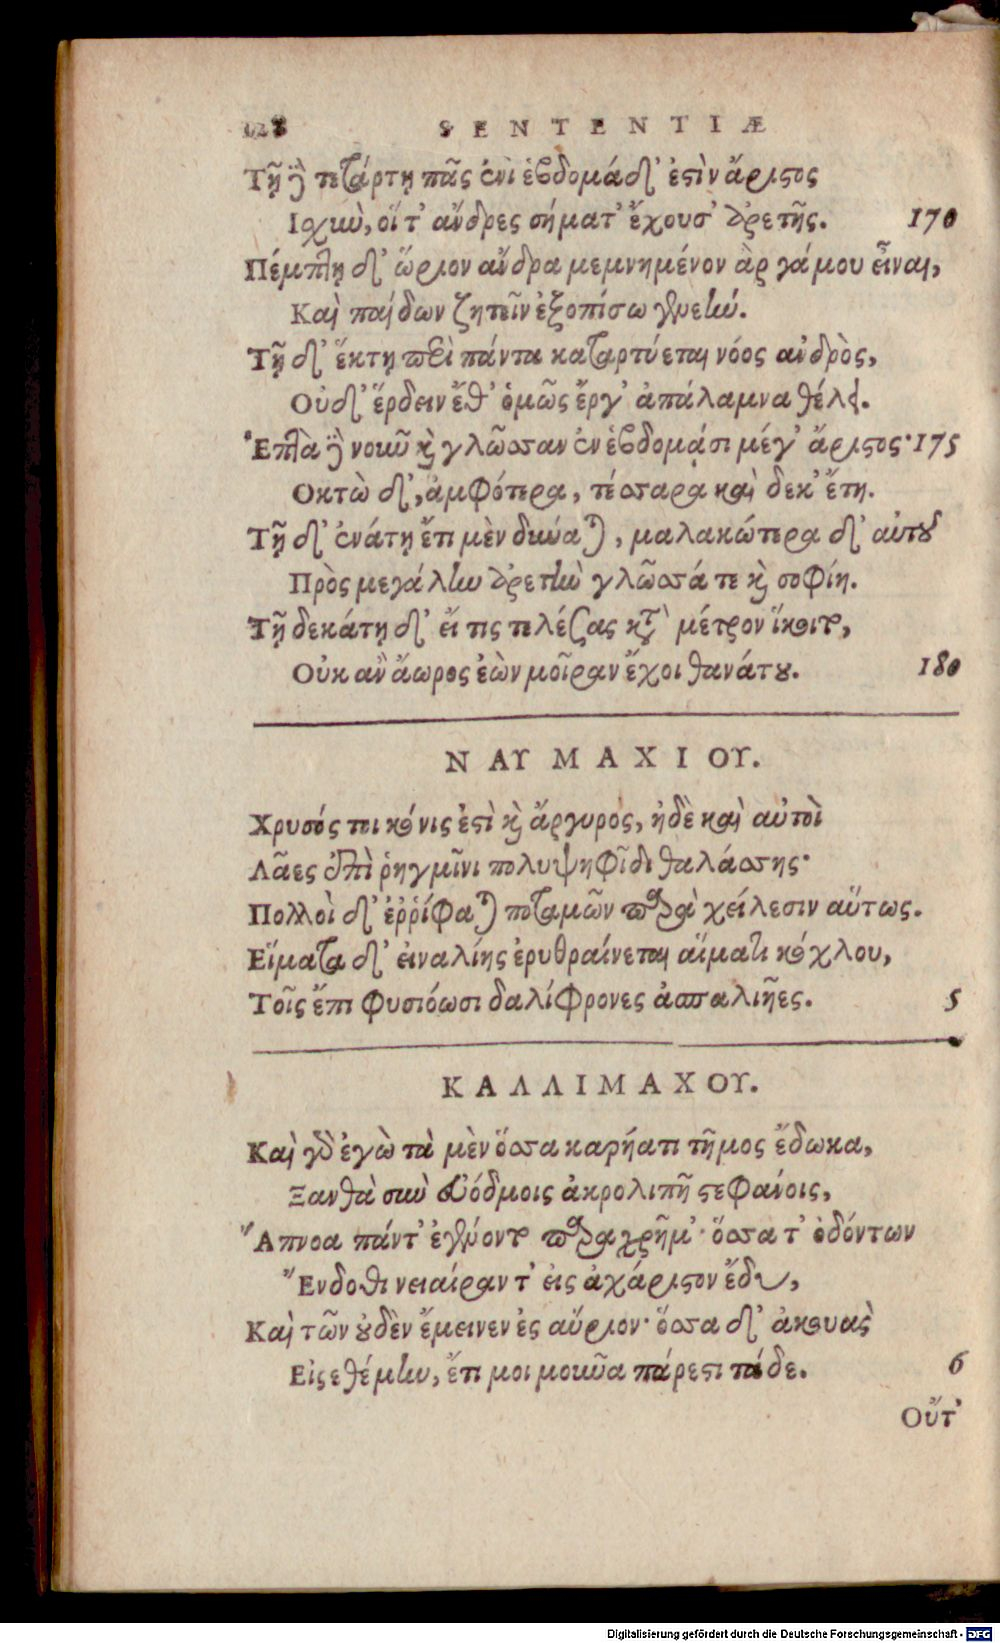 128 SENTENTIÆ
Τῇ δὲ τετάρτῃ πᾶς ἐνὶ ἑβδομάδ' ἐστὶν ἄριστος
Ἰσχὺν, οἵ τ' ἄνδρες σήματ' ἔχουσ' ἀρετῆς. 170
Πέμπτῃ δ' ὥριον ἄνδρα μεμνημένον ἂρ γάμου εἶναι,
Καὶ παίδων ζητεῖν ἐξοπίσω γενεήν.
Τῇ δ' ἕκτῃ περὶ πάντα καταρτύεται νόος ἀνδρὸς,
Οὐδ' ἔρδειν ἔθ' ὁμῶς ἔργ' ἀπάλαμνα θέλει.
Ἑπτὰ δὲ νοῦν καὶ γλῶσσαν ἐν ἑβδομάσι μέγ' ἄριστος· 175
Οκτὼ δ', ἀμφότερα, τέσσαρα καὶ δεκ' ἔτη.
Τῇ δ' ἐνάτῃ ἔτι μὲν δύναται, μαλακώτερα δ' αὐτοῦ
Πρὸς μεγάλην ἀρετὴν γλῶσσά τε καὶ σοφίη.
Τῇ δεκάτῃ δ' εἴ τις τελέσας κατὰ μέτρον ἵκοιτο,
Οὐκ ἂν ἄωρος ἐὼν μοῖραν ἔχοι θανάτου. 180
ΝΑΥΜΑΧΙΟΥ.
Χρυσός τοι κόνις ἐστὶ καὶ ἄργυρος, ἠδὲ καὶ αὐτοὶ
Λᾶες ἐπὶ ῥηγμῖνι πολυψηφῖδι θαλάσσης·
Πολλοὶ δ' ἐῤῥίφαται ποταμῶν παρὰ χείλεσιν αὔτως.
Εἵματα δ' εἰναλίης ἐρυθραίνεται αἵματι κόχλου,
Τοῖς ἔπι φυσιόωσι δαλίφρονες ἀσπαλιῆες. 5
ΚΑΛΛΙΜΑΧΟΥ.
Καὶ γὰρ ἐγὼ τὰ μὲν ὅσσα καρήατι τῆμος ἔδωκα,
Ξανθὰ σὺν εὐόδμοις ἁκρολιπῆ στεφάνοις,
Ἄπνοα πάντ' ἐγένοντο παραχρῆμ'· ὅσσα τ' ὀδόντων
Ἔνδοθι νειαίραν τ' εἰς ἀχάριστον ἔδυ,
Καὶ τῶν οὐδὲν ἔμεινεν ἐς αὔριον· ὅσσα δ' ἀκουαῖς
Εἰσεθέμην, ἔτι μοι μοῦνα πάρεστι τάδε. 6
Οὔτ'
Digitalisierung gefördert durch die Deutsche Forschungsgemeinschaft - DFG